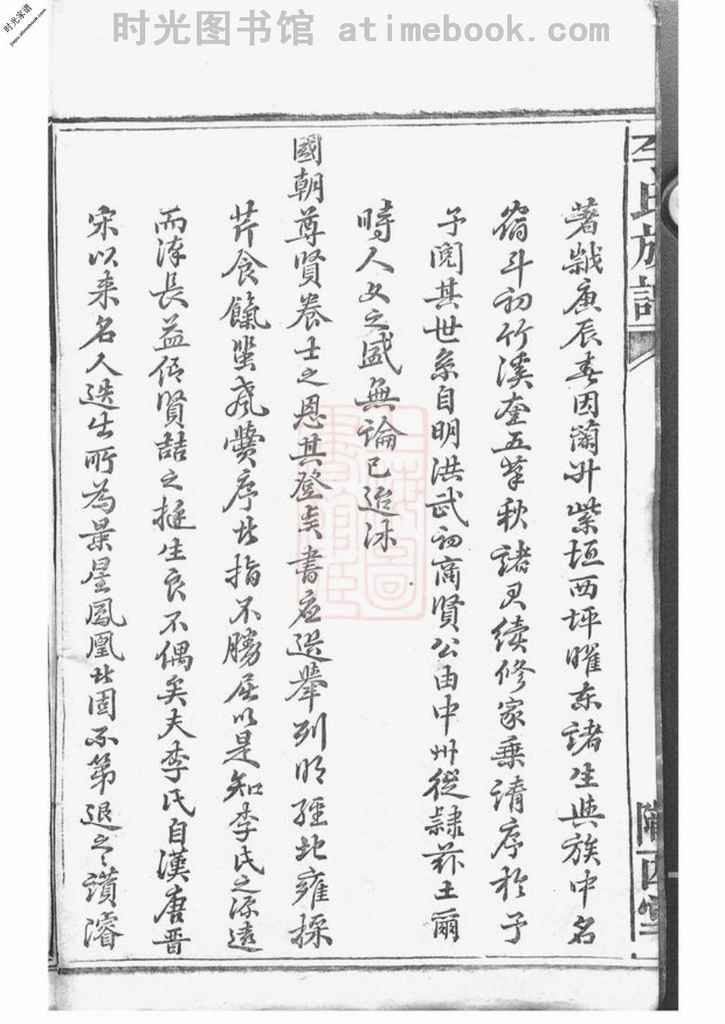 时光图书馆 atimebook.com
时光家谱
李氏族譜
隴西堂
著戱庚辰春因蘭升紫垣西坪曜东諸生與族中名
宿斗初竹溪奎五筆秋諸君續修家乗请序於予
予閱其世系自明洪武初商賢公由中州從隸茲土爾
時人文之盛無論已迨沐
國朝尊賢養士之恩其登賢書应選舉列明經北雍採
芹食餼蜚聲黌序者指不勝屈以是知李氏之源遠
而流長益信賢喆之挺生良不偶矣夫李氏自漢唐晋
宋以来名人迭出所為景星鳳凰者固不第退之讃濬